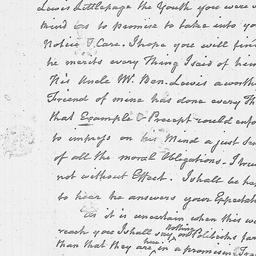 Lewis Littlepage the Youth you were
kind as to promise to take into yo
Notice & Care. I hope you will fin
he merits every Thing I said of him
His Uncle Mr. Ben. Lewis a worth
Friend of mine has done every Th
that Example & Precept could enfo
to impress on his Mind a just Sen
of all the moral Obligations. I tru
not without Effect. I shall be ha
to hear he answers your Expectat
As it is uncertain when this w
reach you I shall say nothing on Publicks far
than that they are here in a promising Trai